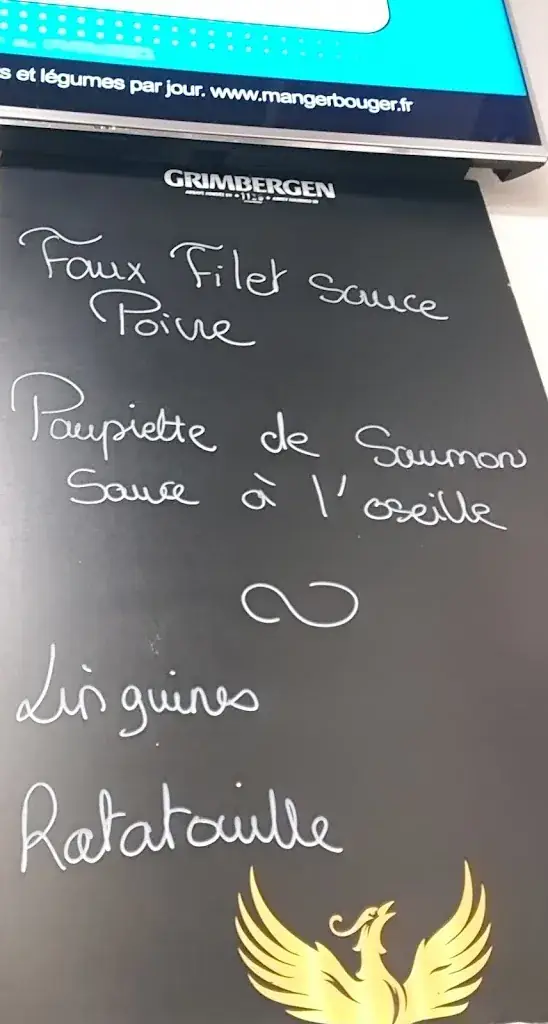 s et légumes par jour. www.mangerbouger.fr
GRIMBERGEN
Faux Filet sauce
Poivre
Paupiette de Saumon
Sauce à l'oseille
Linguines
Ratatouille